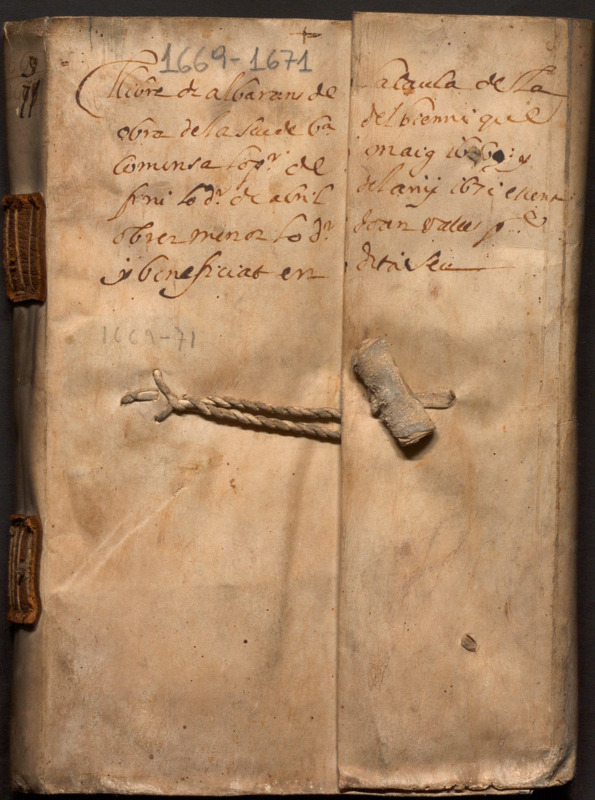 1669-1671
Llibre de albarans de la taula de la
obra de la Seu de Ba del bienni que
comensa lo pr de maig 1669: y
fini lo dr de abril del any 1671 essent
obrer menor lo Dr Joan Valls pre
y beneficiat en dita Seu
1669-71